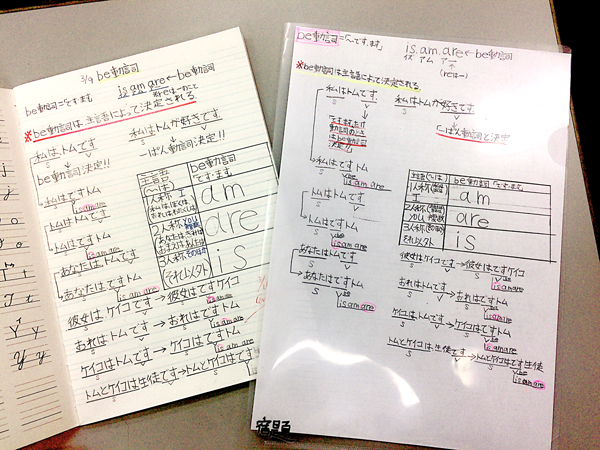 3/9 be動詞
is am are←be動詞
be動詞=です・ます
※be動詞は主語によって決定される
私はトムです
S
V
私はトムが好きです
S
V
be動詞決定!!
一ぱん動詞決定!!
私はですトム
is am are
トムはトムです
トムはですトム
is am are
あなたはトムです
あなたはですトム
is am are
主語
(〜は)
be動詞
です・ます
1人称 I
am
2人称 you
are
3人称
それ以外
is
彼女はケイコです→彼女はですケイコ
is am are
おれはトムです→おれはですトム
is am are
ケイコはトムです→ケイコはですトム
is am are
トムとケイコは生徒です→トムとケイコはです
is am are
be動詞=「〜です・ます」
is. am. are←be動詞
イズ アム アー
※be動詞は主語によって決定される
私はトムです
S
V
私はトムが好きです
S
V
一ぱん動詞と決定
私はですトム
S
is am are
トムはトムです
S
V
トムはですトム
S
is am are
あなたはトムです
S
V
あなたはですトム
S
is am are
主語(〜は)
be動詞「です・ます」
1人称(単数)
I
am
2人称(単数)
you 複数
are
3人称(単数)
それ以外
is
彼女はケイコです→彼女はですケイコ
S
V
is am are
おれはトムです→おれはですトム
S
V
is am are
ケイコはトムです→ケイコはですトム
S
V
is am are
トムとケイコは生徒です→トムとケイコはです生徒
S
V be
is am are